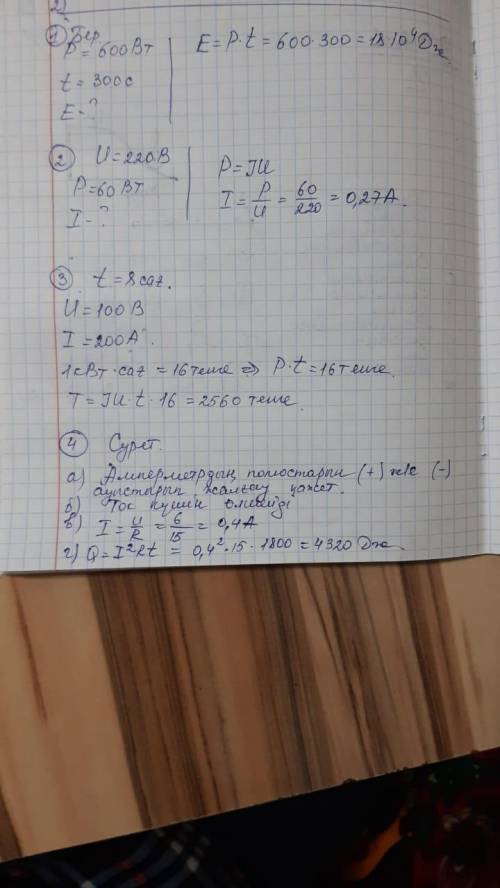 2)
① Бер
P = 600Вт
E = P·t = 600·300 = 18·10⁴ Дж.
t = 300с
E - ?
② U = 220В
P = 60Вт
I - ?
P = IU
I = P/U = 60/220 = 0,27А.
③ t = 8 саг.
U = 100В
I = 200А.
1кВт·сағ = 16теңге ⇒ P·t = 16теңге.
T = IU·t·16 = 2560 теңге.
④ Сурет.
а) Амперметрдың полюстарын (+) ж/е (-)
ауыстырып жалғау қажет.
б) Ток күшін өлшейді
в) I = U/R = 6/15 = 0,4А
г) Q = I²Rt = 0,4²·15·1800 = 4320 Дж.